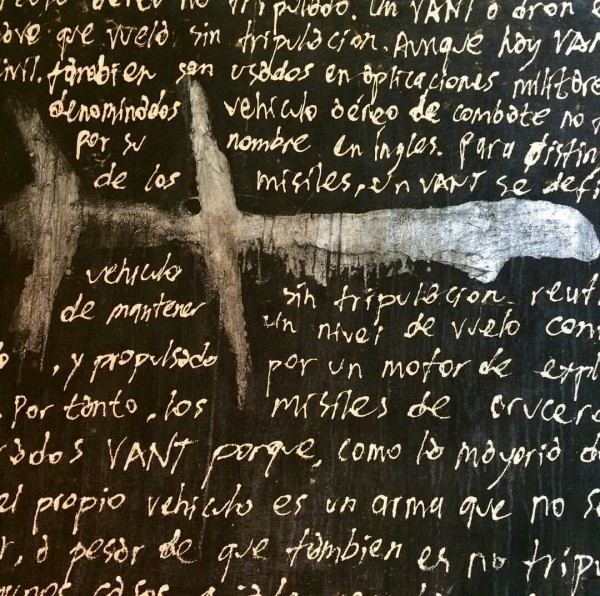 aéreo no tripulado. Un VANT o dron e
nave que vuela sin tripulación. Aunque hay VAN
ivil. tambien son usados en aplicaciones militare
denominados vehiculo aéreo de combate no
por su nombre en ingles. Para distin
de los misiles, un VANT se defi
vehiculo sin tripulacion reuti
de mantener un nivel de vuelo con
, y propulsado por un motor de expl
. Por tanto, los misiles de crucero
rados VANT porque, como la mayoria de
el propio vehiculo es un arma que no se
r, a pesar de que tambien es no tripu
casos